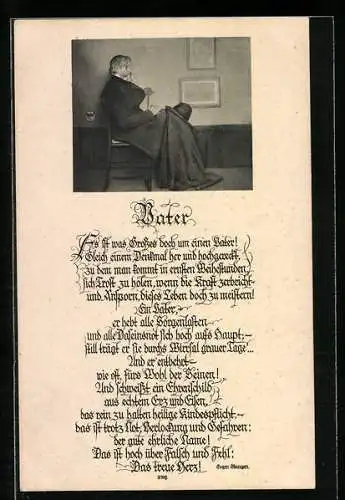 Vater
Es ist was Großes doch um einen Vater!
Gleich einem Denkmal her und hochgereckt,
zu dem man kommt in ernsten Weihestunden,
sich Trost zu holen, wenn die Kraft zerbricht
und Ansporn, dieses Leben doch zu meistern!
Ein Vater,
er hebt alle Sorgenlasten
und alle Daseinsnot sich hoch aufs Haupt;
still trägt er sie durchs Wirrsal grauer Tage...
Und er entbehrt
wie oft, fürs Wohl der Seinen!
Und schweißt ein Ehrenschild
aus echtem Erz und Eisen,
das rein zu halten heilige Kindespflicht:
das ist trotz Not, Verlockung und Gefahren:
der gute ehrliche Name!
Das ist hoch über Falsch und Fehl:
Das treue Herz!